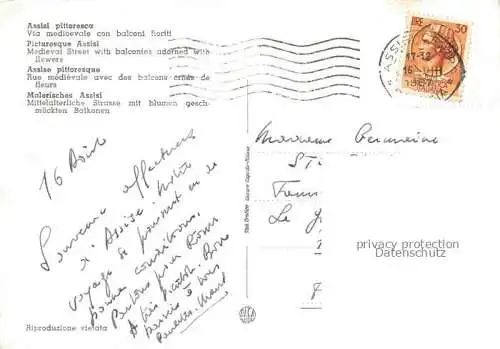 Assisi pittoresca
Via medioevale con balconi fioriti
Picturesque Assisi
Medieval Street with balconies adorned with
flowers
Assise pittoresque
Rue médiévale avec des balcons ornés de
fleurs
Malerisches Assisi
Mittelalterliche Strasse mit blumen gesch-
mückten Balkonen
LIRE 30
ASSISI
17-18
16-VIII
16 Août
Souvenir affectueux
d'Assise. Notre
voyage se poursuit en de
bonne conditions.
Partons pour Rome
A très bientôt. Bons
baisers à tous
Madame Germaine
St
Le
privacy protection
Datenschutz
Riproduzione vietata